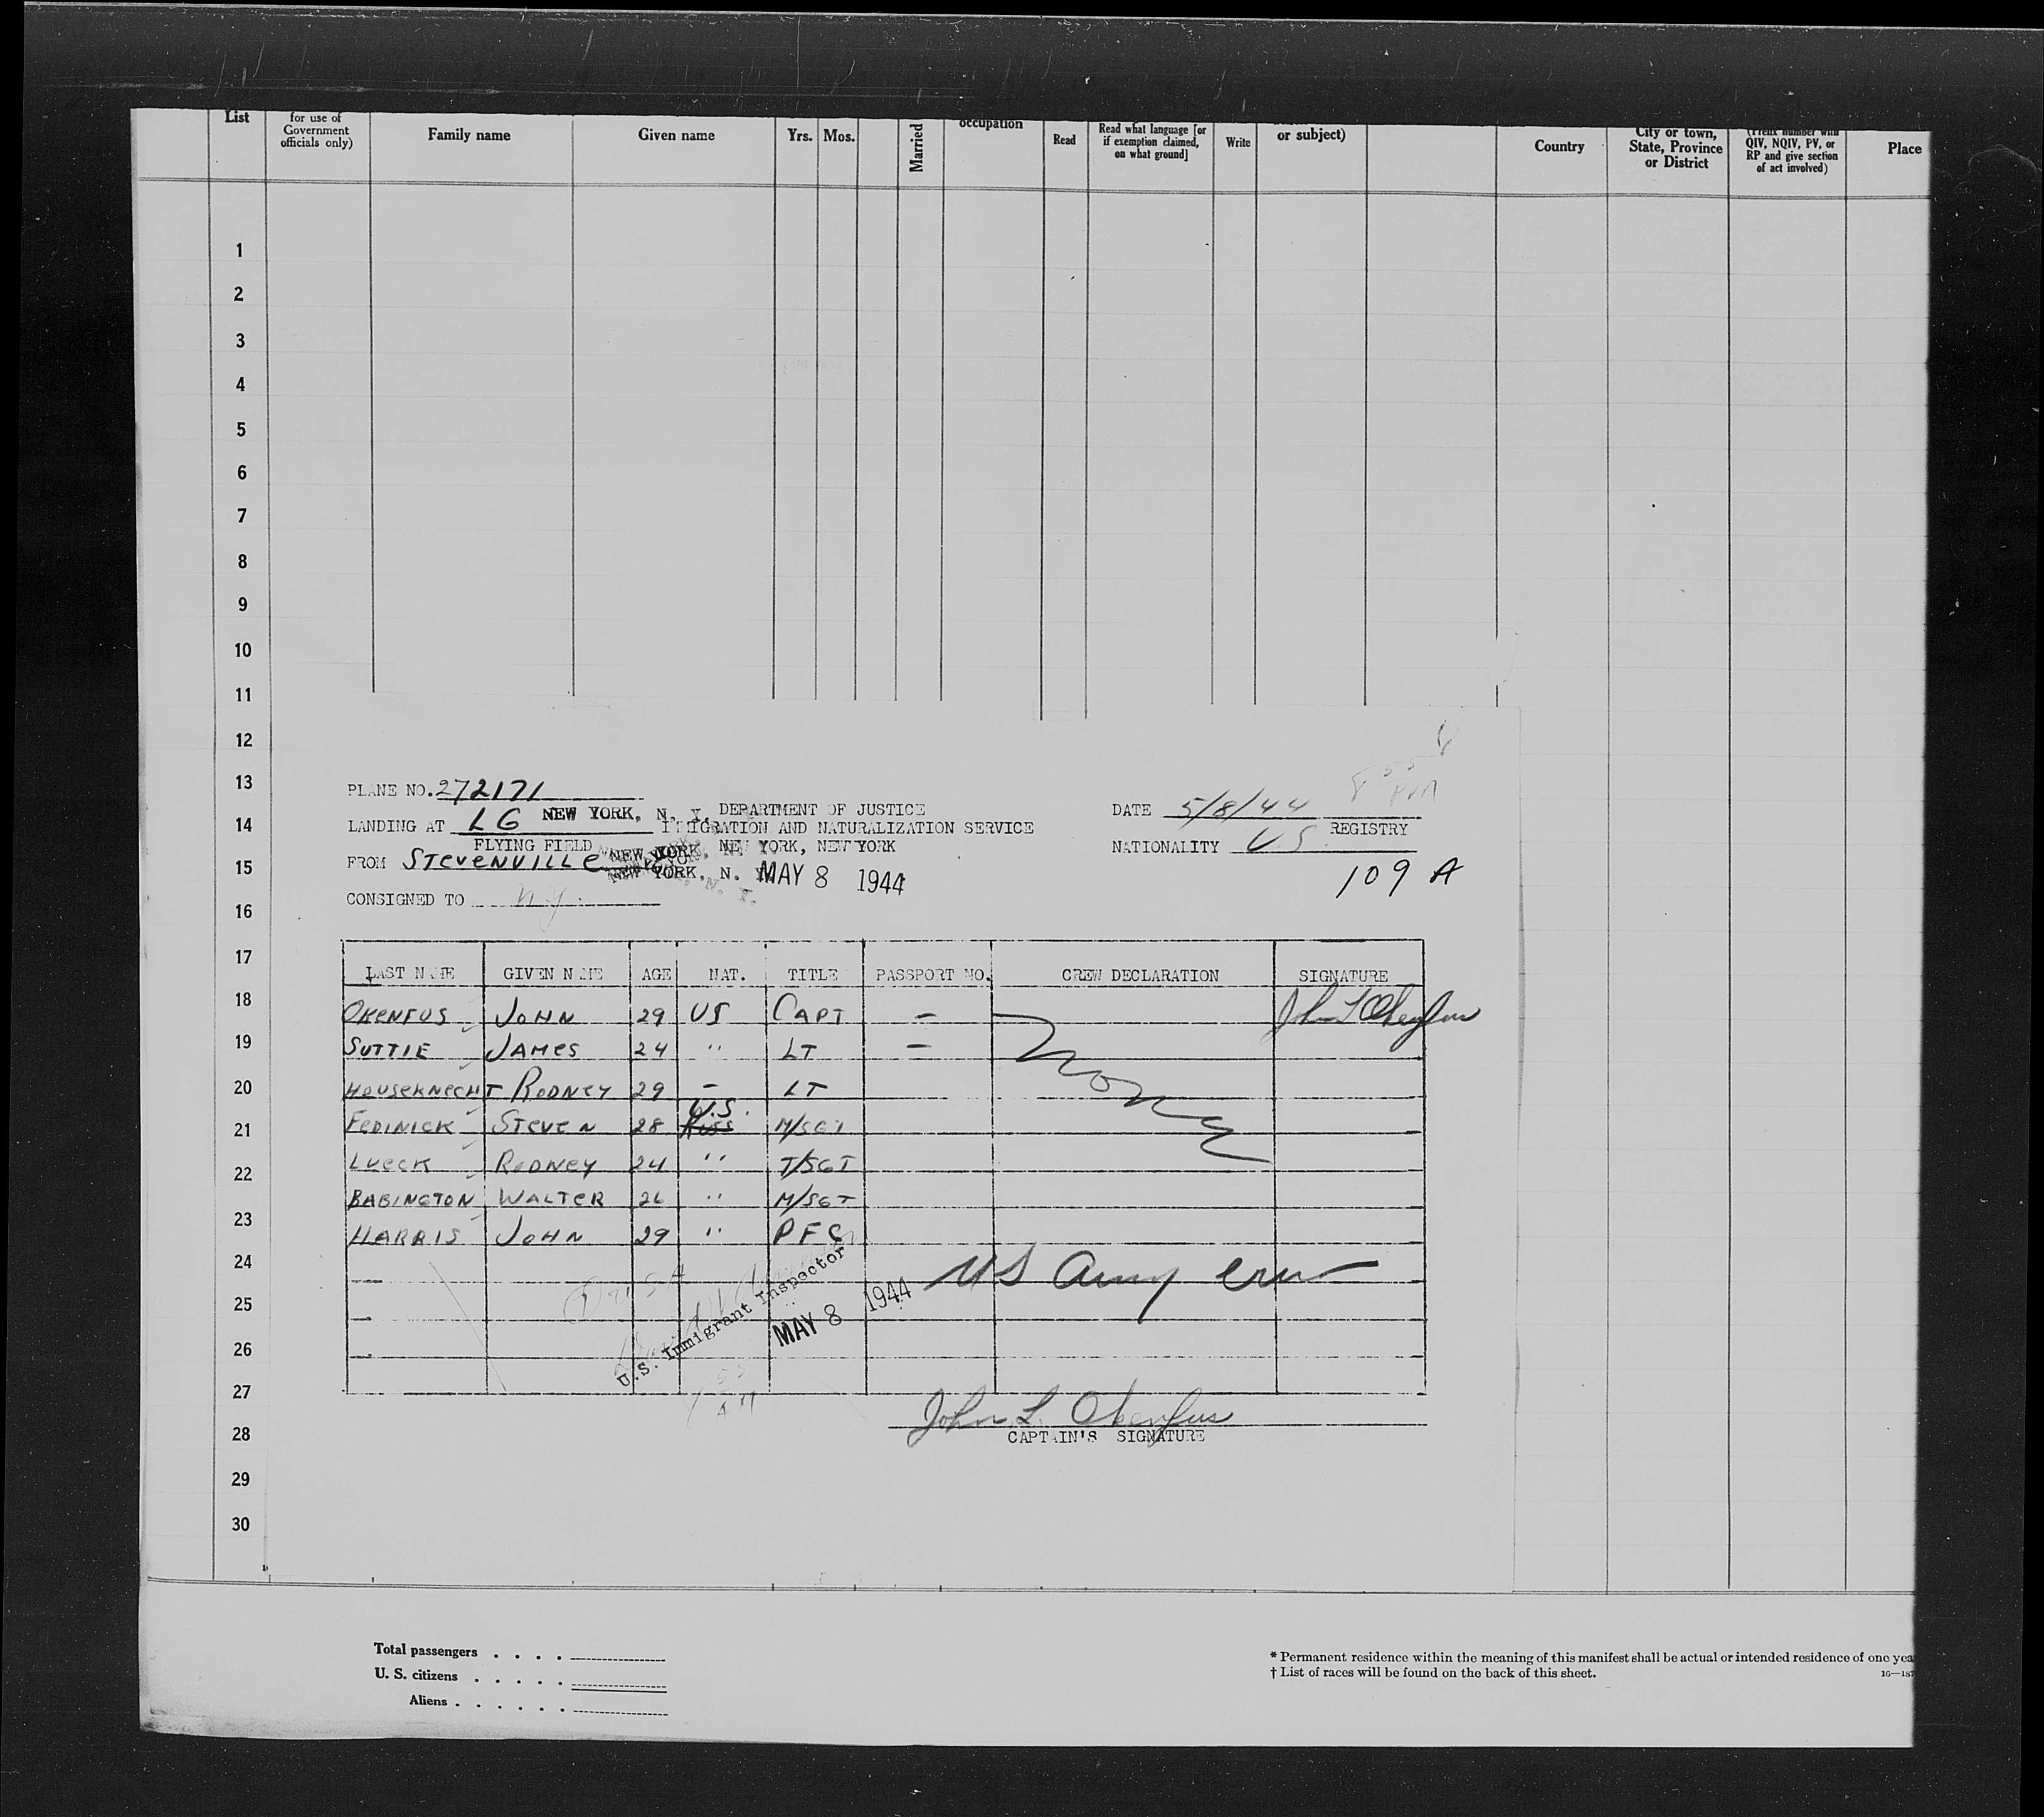 List
for use of
Government
officials only)
Family name
Given name
Yrs.
Mos.
Married
occupation
Read
Read what language [or
if exemption claimed,
on what ground]
Write
or subject)
Country
City or town,
State, Province
or District
(Prefix number with
QIV, NQIV, PV, or
RP and give section
of act involved)
Place
1
2
3
4
5
6
7
8
9
10
11
12
13
14
15
16
17
18
19
20
21
22
23
24
25
26
27
28
29
30
8 55
PM
PLANE NO. 272171
LANDING AT LG NEW YORK, N. Y. DEPARTMENT OF JUSTICE DATE 5/8/44
IMMIGRATION AND NATURALIZATION SERVICE REGISTRY
FLYING FIELD NEW YORK, NEW YORK NATIONALITY U.S.
FROM STEVENVILLE NEW YORK, N. Y. MAY 8 1944 109 A
CONSIGNED TO NY.
LAST NAME GIVEN NAME AGE NAT. TITLE PASSPORT NO. CREW DECLARATION SIGNATURE
OKENFUS JOHN 29 US CAPT — John L Okenfus
SUTTIE JAMES 24 " LT —
None
HOUSEKNECHT RODNEY 29 — LT
FEDINICK STEVEN 28 U.S. Russ M/SGT
LUECK RODNEY 24 " T/SGT
BABINGTON WALTER 26 " M/SGT
HARRIS JOHN 29 " PFC
US Army crew
U.S. Immigrant Inspector
MAY 8 1944
John L. Okenfus
CAPTAIN'S SIGNATURE
Total passengers . . . .
U. S. citizens . . . . .
Aliens . . . . . .
* Permanent residence within the meaning of this manifest shall be actual or intended residence of one yea
† List of races will be found on the back of this sheet.
16—187